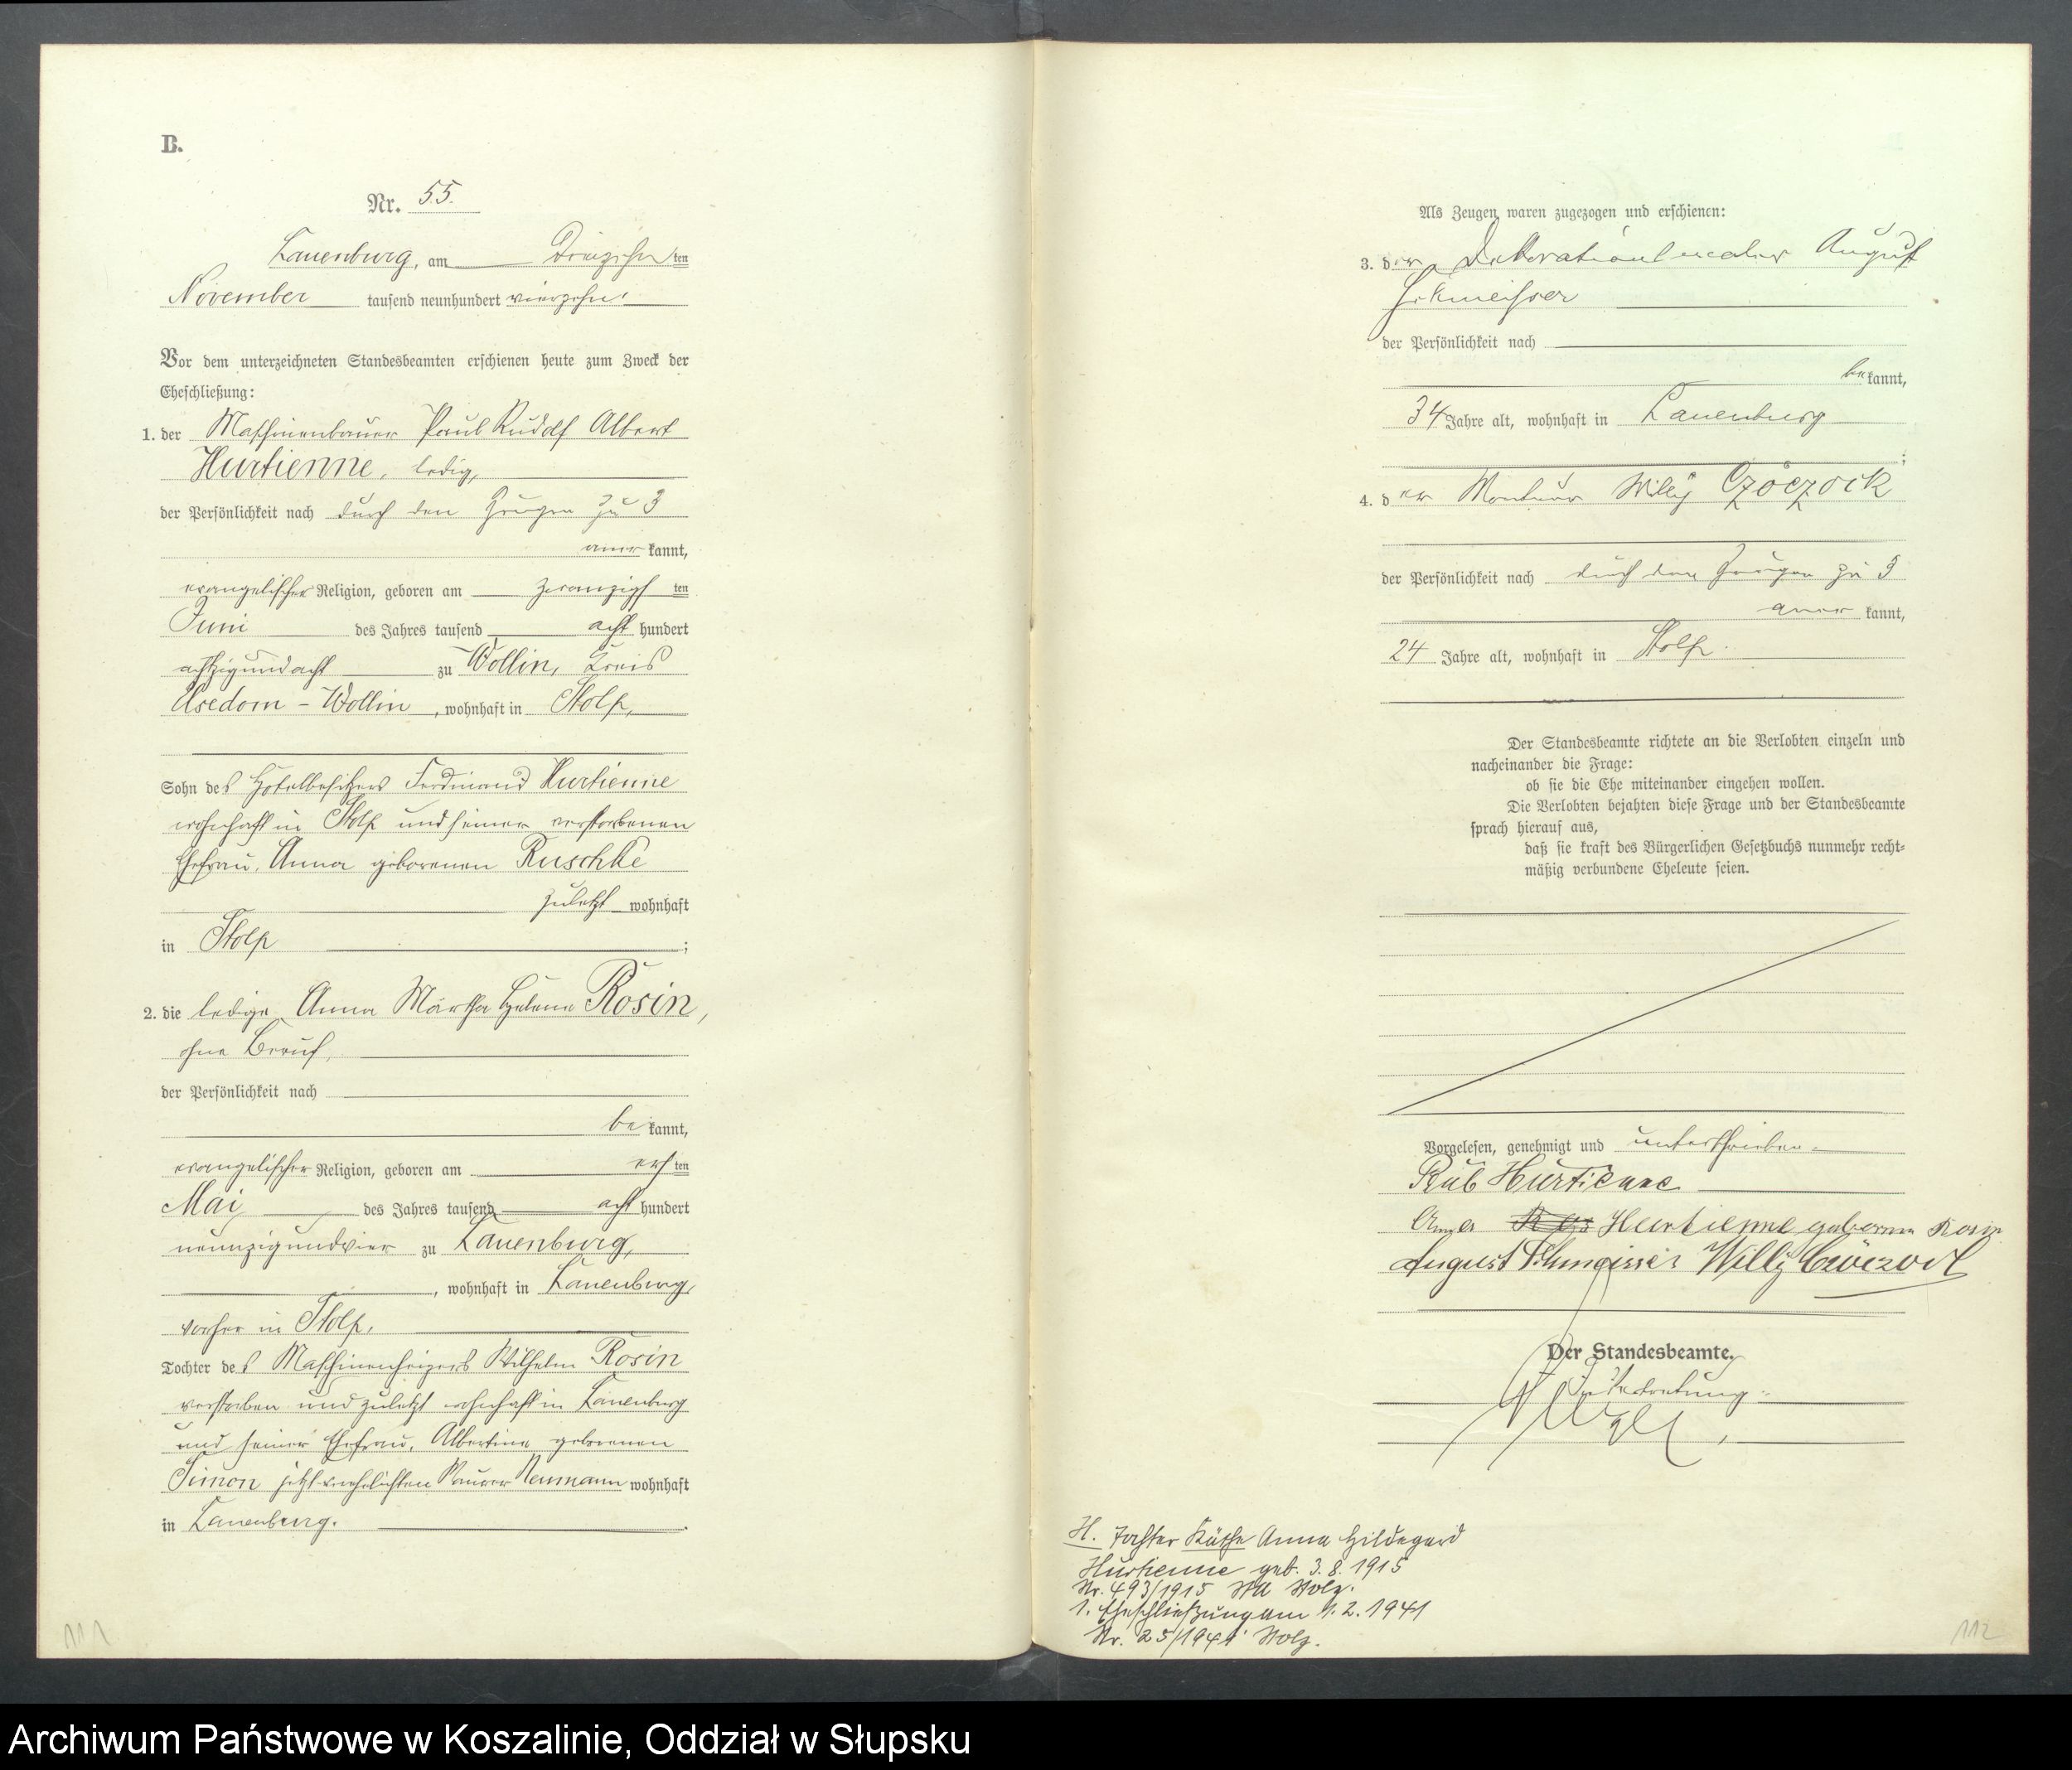 B.
Nr. 55.
Lauenburg, am Dreizehn ten
November tausend neunhundert vierzehn.
Vor dem unterzeichneten Standesbeamten erschienen heute zum Zweck der
Eheschließung:
1. der Maschinenbauer Paul Rudolf Albert
Hurtienne, ledig,
der Persönlichkeit nach durch den Zeugen zu 3
aner kannt,
evangelischer Religion, geboren am zwanzigst ten
Juni des Jahres tausend acht hundert
achtzigundacht zu Wollin, Kreis
Usedom - Wollin, wohnhaft in Stolp,
Sohn des Hotelbesitzers Ferdinand Hurtienne
wohnhaft in Stolp und seiner verstorbenen
Ehefrau, Anna geborenen Ruschke
zuletzt wohnhaft
in Stolp ;
2. die ledige Anna Martha Helene Rosin,
ohne Beruf,
der Persönlichkeit nach
be kannt,
evangelischer Religion, geboren am erst ten
Mai des Jahres tausend acht hundert
neunzigundvier zu Lauenburg,
, wohnhaft in Lauenburg,
vorher in Stolp,
Tochter des Maschinenheizers Wilhelm Rosin
verstorben und zuletzt wohnhaft in Lauenburg
und seiner Ehefrau, Albertine geborenen
Simon jetzt verehelichten Maurer Neumann wohnhaft
in Lauenburg.
111
Als Zeugen waren zugezogen und erschienen:
3. der Dekorationsmaler August
Schmeisser
der Persönlichkeit nach
be kannt,
34 Jahre alt, wohnhaft in Lauenburg
;
4. der Monteur Willy Czöczock
der Persönlichkeit nach durch den Zeugen zu 3
aner kannt,
24 Jahre alt, wohnhaft in Stolp.
Der Standesbeamte richtete an die Verlobten einzeln und
nacheinander die Frage:
ob sie die Ehe miteinander eingehen wollen.
Die Verlobten bejahten diese Frage und der Standesbeamte
sprach hierauf aus,
daß sie kraft des Bürgerlichen Gesetzbuchs nunmehr recht-
mäßig verbundene Eheleute seien.
Vorgelesen, genehmigt und unterschrieben
Paul Hurtienne
Anna Hurtienne geborene Rosin
August Schmeisser Willy Czöczock
Der Standesbeamte.
In Vertretung
H. Tochter Käthe Anna Hildegard
Hurtienne geb. 3.8.1915
Nr. 493/1915 StA Stolp.
1. Eheschließung am 1.2.1941
Nr. 25/1941 Stolp.
112
Archiwum Państwowe w Koszalinie, Oddział w Słupsku